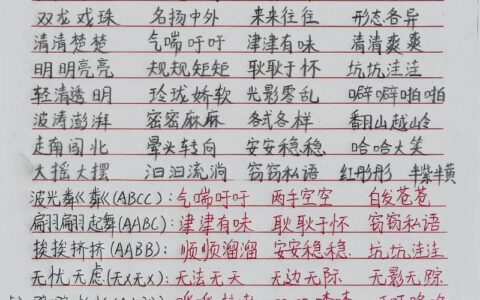 双龙戏珠 名扬中外 来来往往 形态各异
清清楚楚 气喘吁吁 津津有味 清清爽爽
明明亮亮 规规矩矩 耿耿于怀 坑坑洼洼
轻清透明 玲珑娇软 光影零乱 噼噼啪啪
波涛澎湃 密密麻麻 各式各样 翻山越岭
走南闯北 晕头转向 安安稳稳 哈哈大笑
大摇大摆 汩汩流淌 窃窃私语 红彤彤
波光粼粼(ABCC):气喘吁吁 两手空空 白发苍苍
翩翩起舞(AABC):津津有味 耿耿于怀 窃窃私语
挨挨挤挤(AABB):顺顺溜溜 安安稳稳 坑坑洼洼
无忧无虑(无X无X):无法无天 无边无际 无影无踪